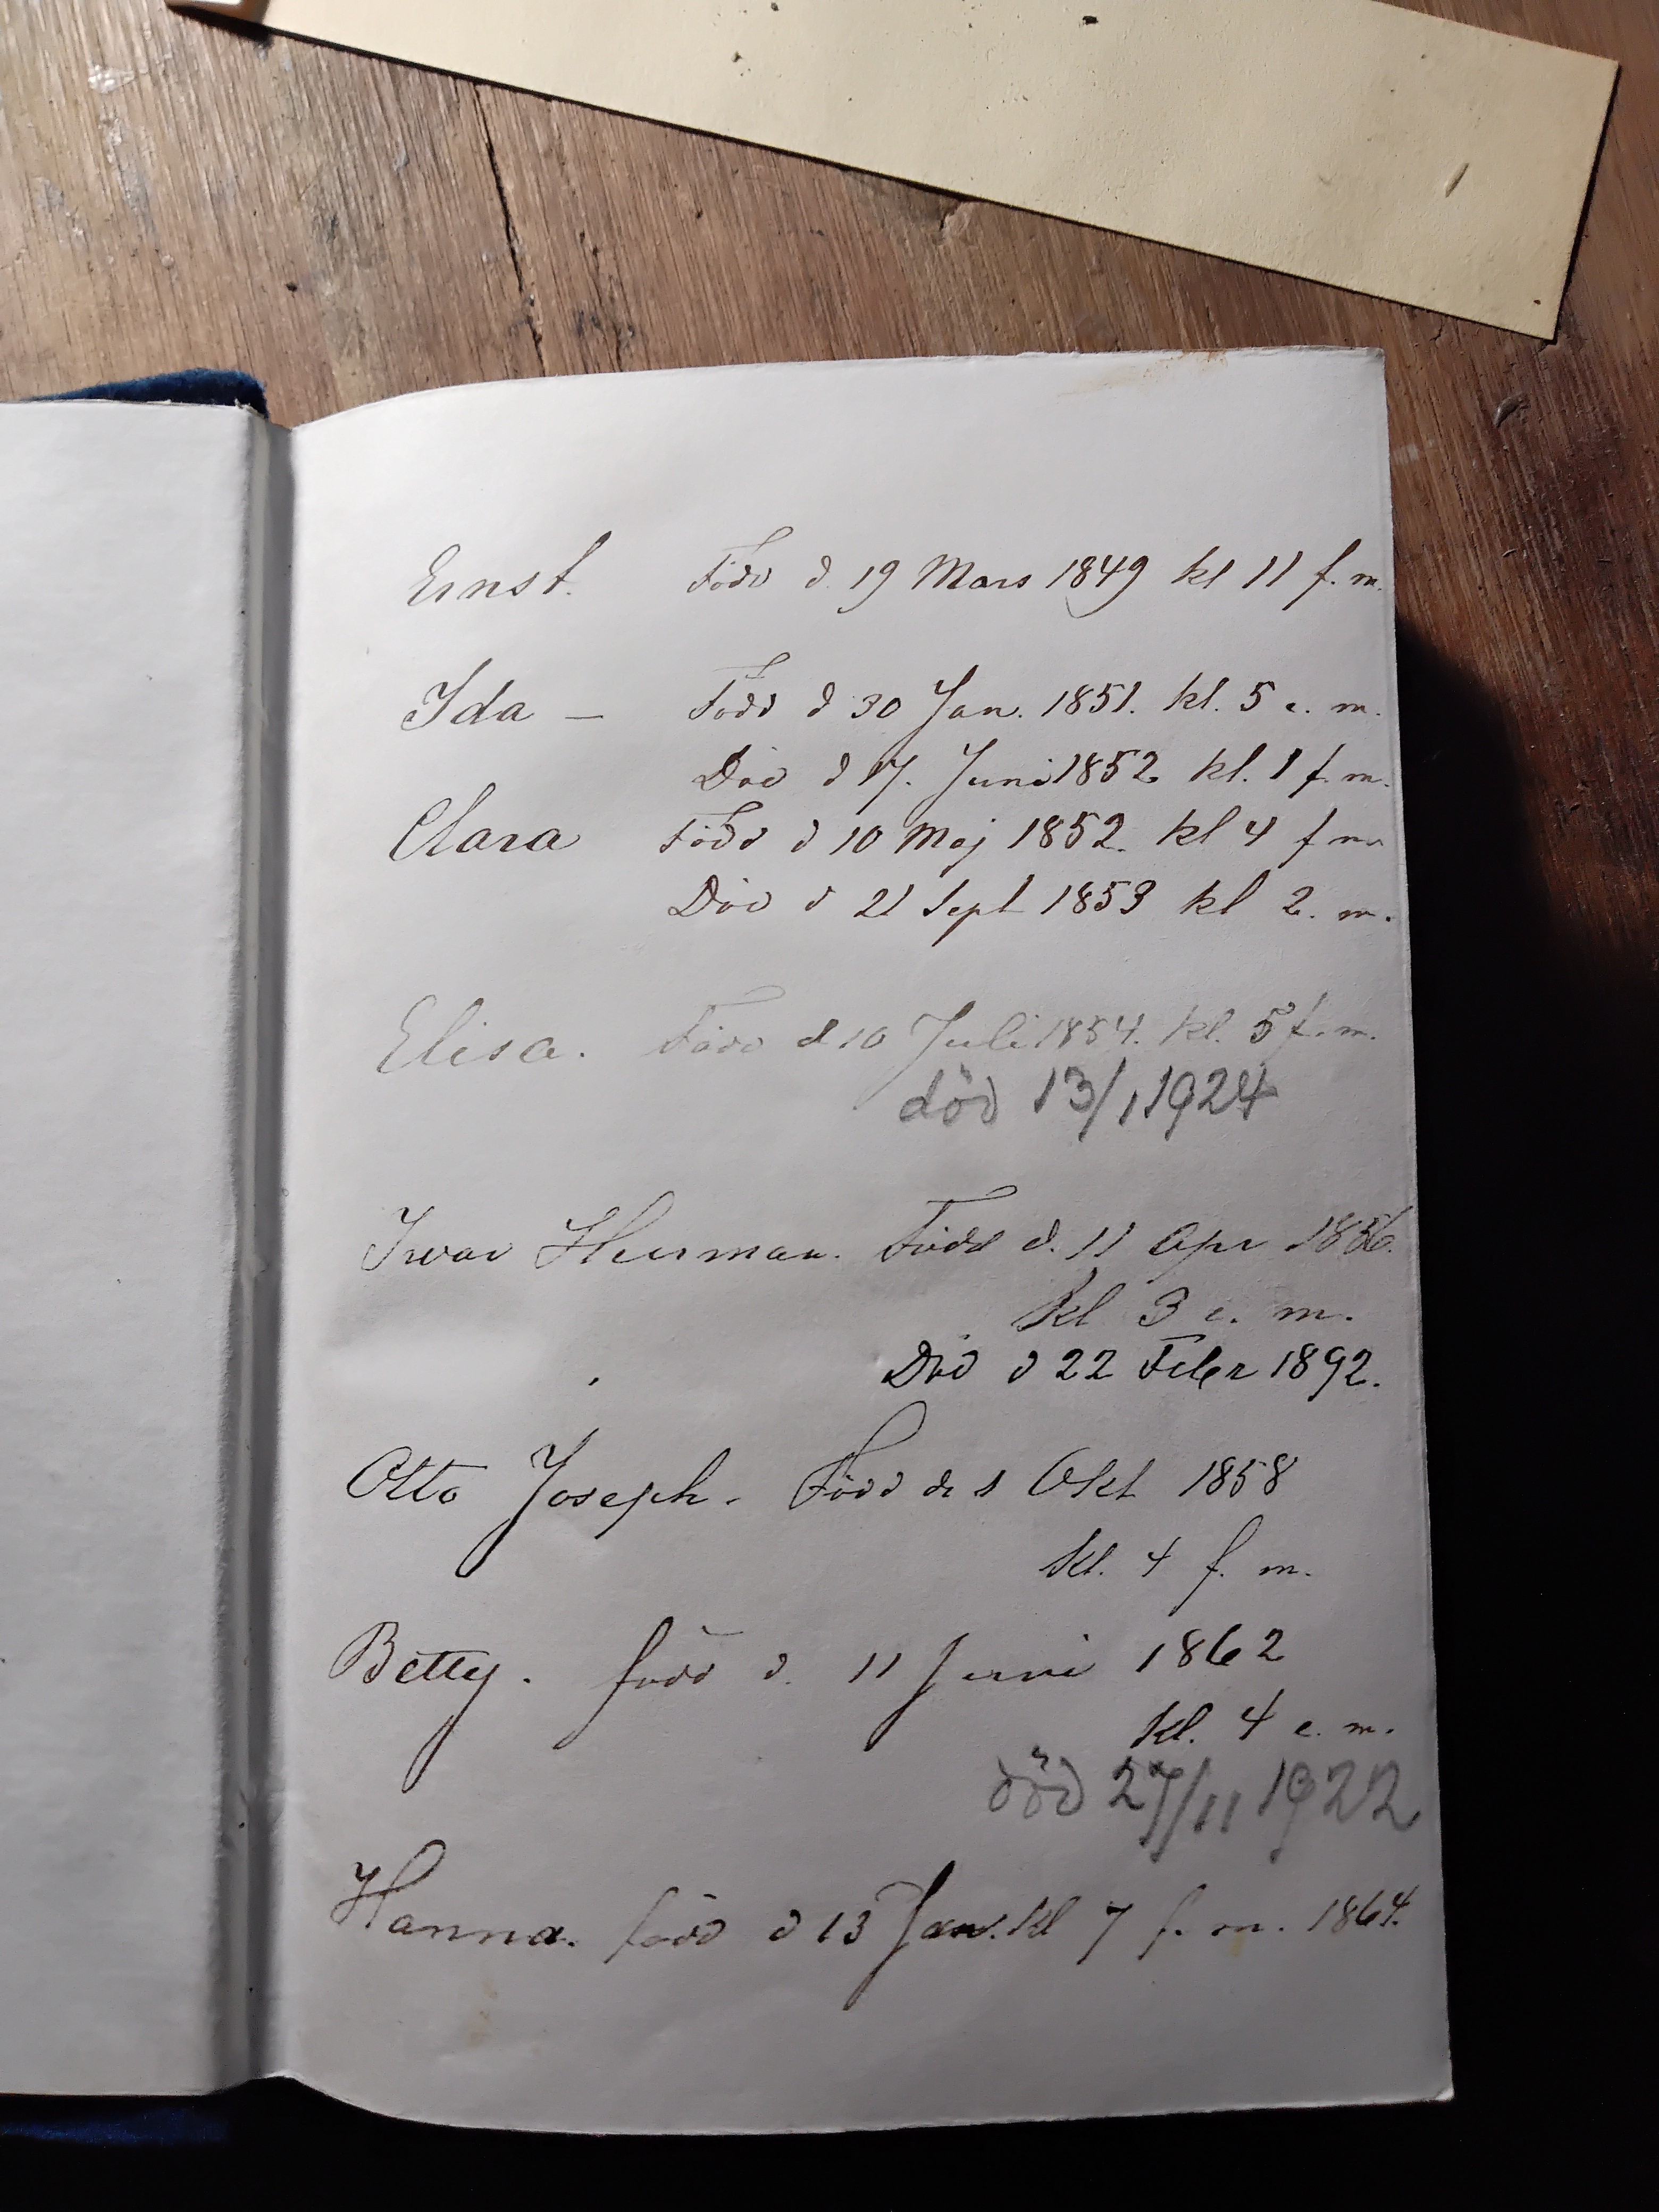 Ernst. Född d. 19 Mars 1849 kl 11 f. m.
Ida – Född d 30 Jan. 1851. kl. 5 e. m.
Död d 17. Juni 1852 kl. 1 f. m.
Clara Född d 10 Maj 1852. kl 4 f m
Död d 21 Sept 1853 kl 2. m.
Elisa. Född d 10 Juli 1854. kl. 5 f. m.
död 13/1 1924
Iwar Herman. Född d. 11 Apr 1856.
kl 3 e. m.
Död d 22 Febr 1892.
Otto Joseph. Född d 1 Okt 1858
kl. 4 f. m.
Betty. född d. 11 Juni 1862
kl. 4 e. m.
död 27/11 1922
Hanna. född d 13 Jan. kl 7 f. m. 1864.